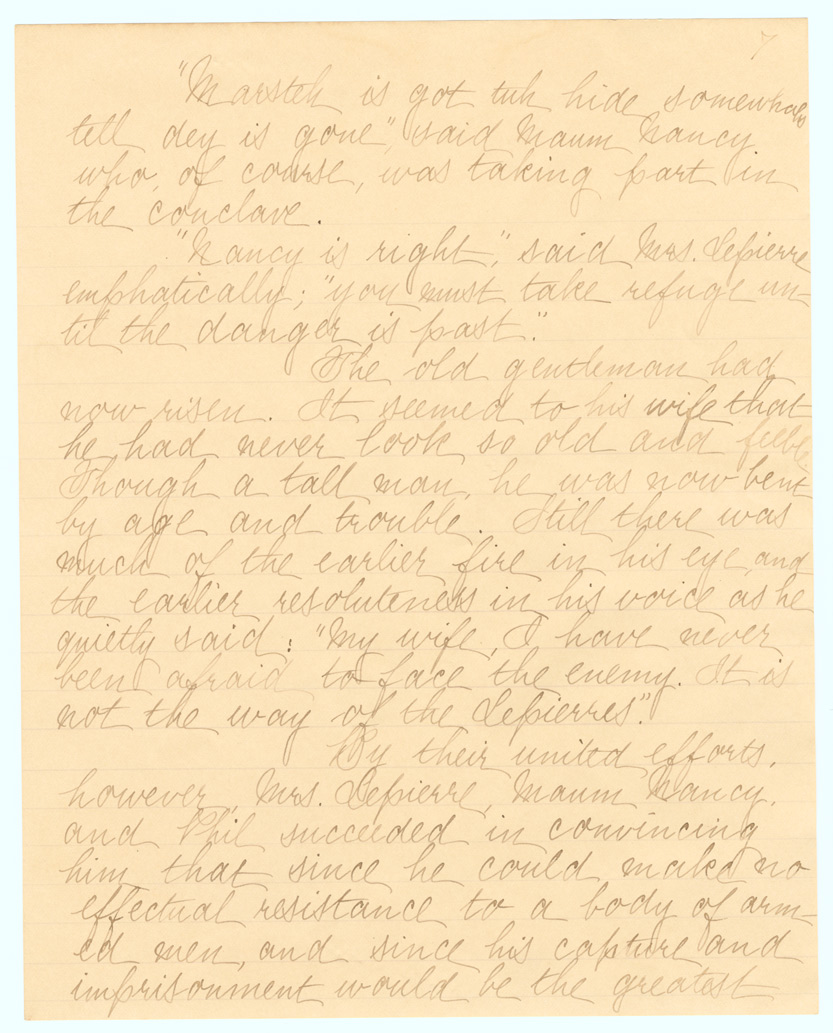 7
"Marsteh is got tuh hide somewhar
tell dey is gone", said Maum Nancy
who, of course, was taking part in
the conclave.
"Nancy is right," said Mrs. Lepierre
emphatically; "you must take refuge un-
til the danger is past."
The old gentleman had
now risen. It seemed to his wife that
he had never look so old and
Though a tall man, he was now bent
by age and trouble. Still there was
much of the earlier fire in his eye, and
the earlier resoluteness in his voice as he
quietly said: "My wife, I have never
been afraid to face the enemy. It is
not the way of the Lepierres."
By their united efforts,
however, Mrs. Lepierre, Maum Nancy,
and Phil succeeded in convincing
him that since he could make no
effectual resistance to a body of arm-
ed men, and since his capture and
imprisonment would be the greatest